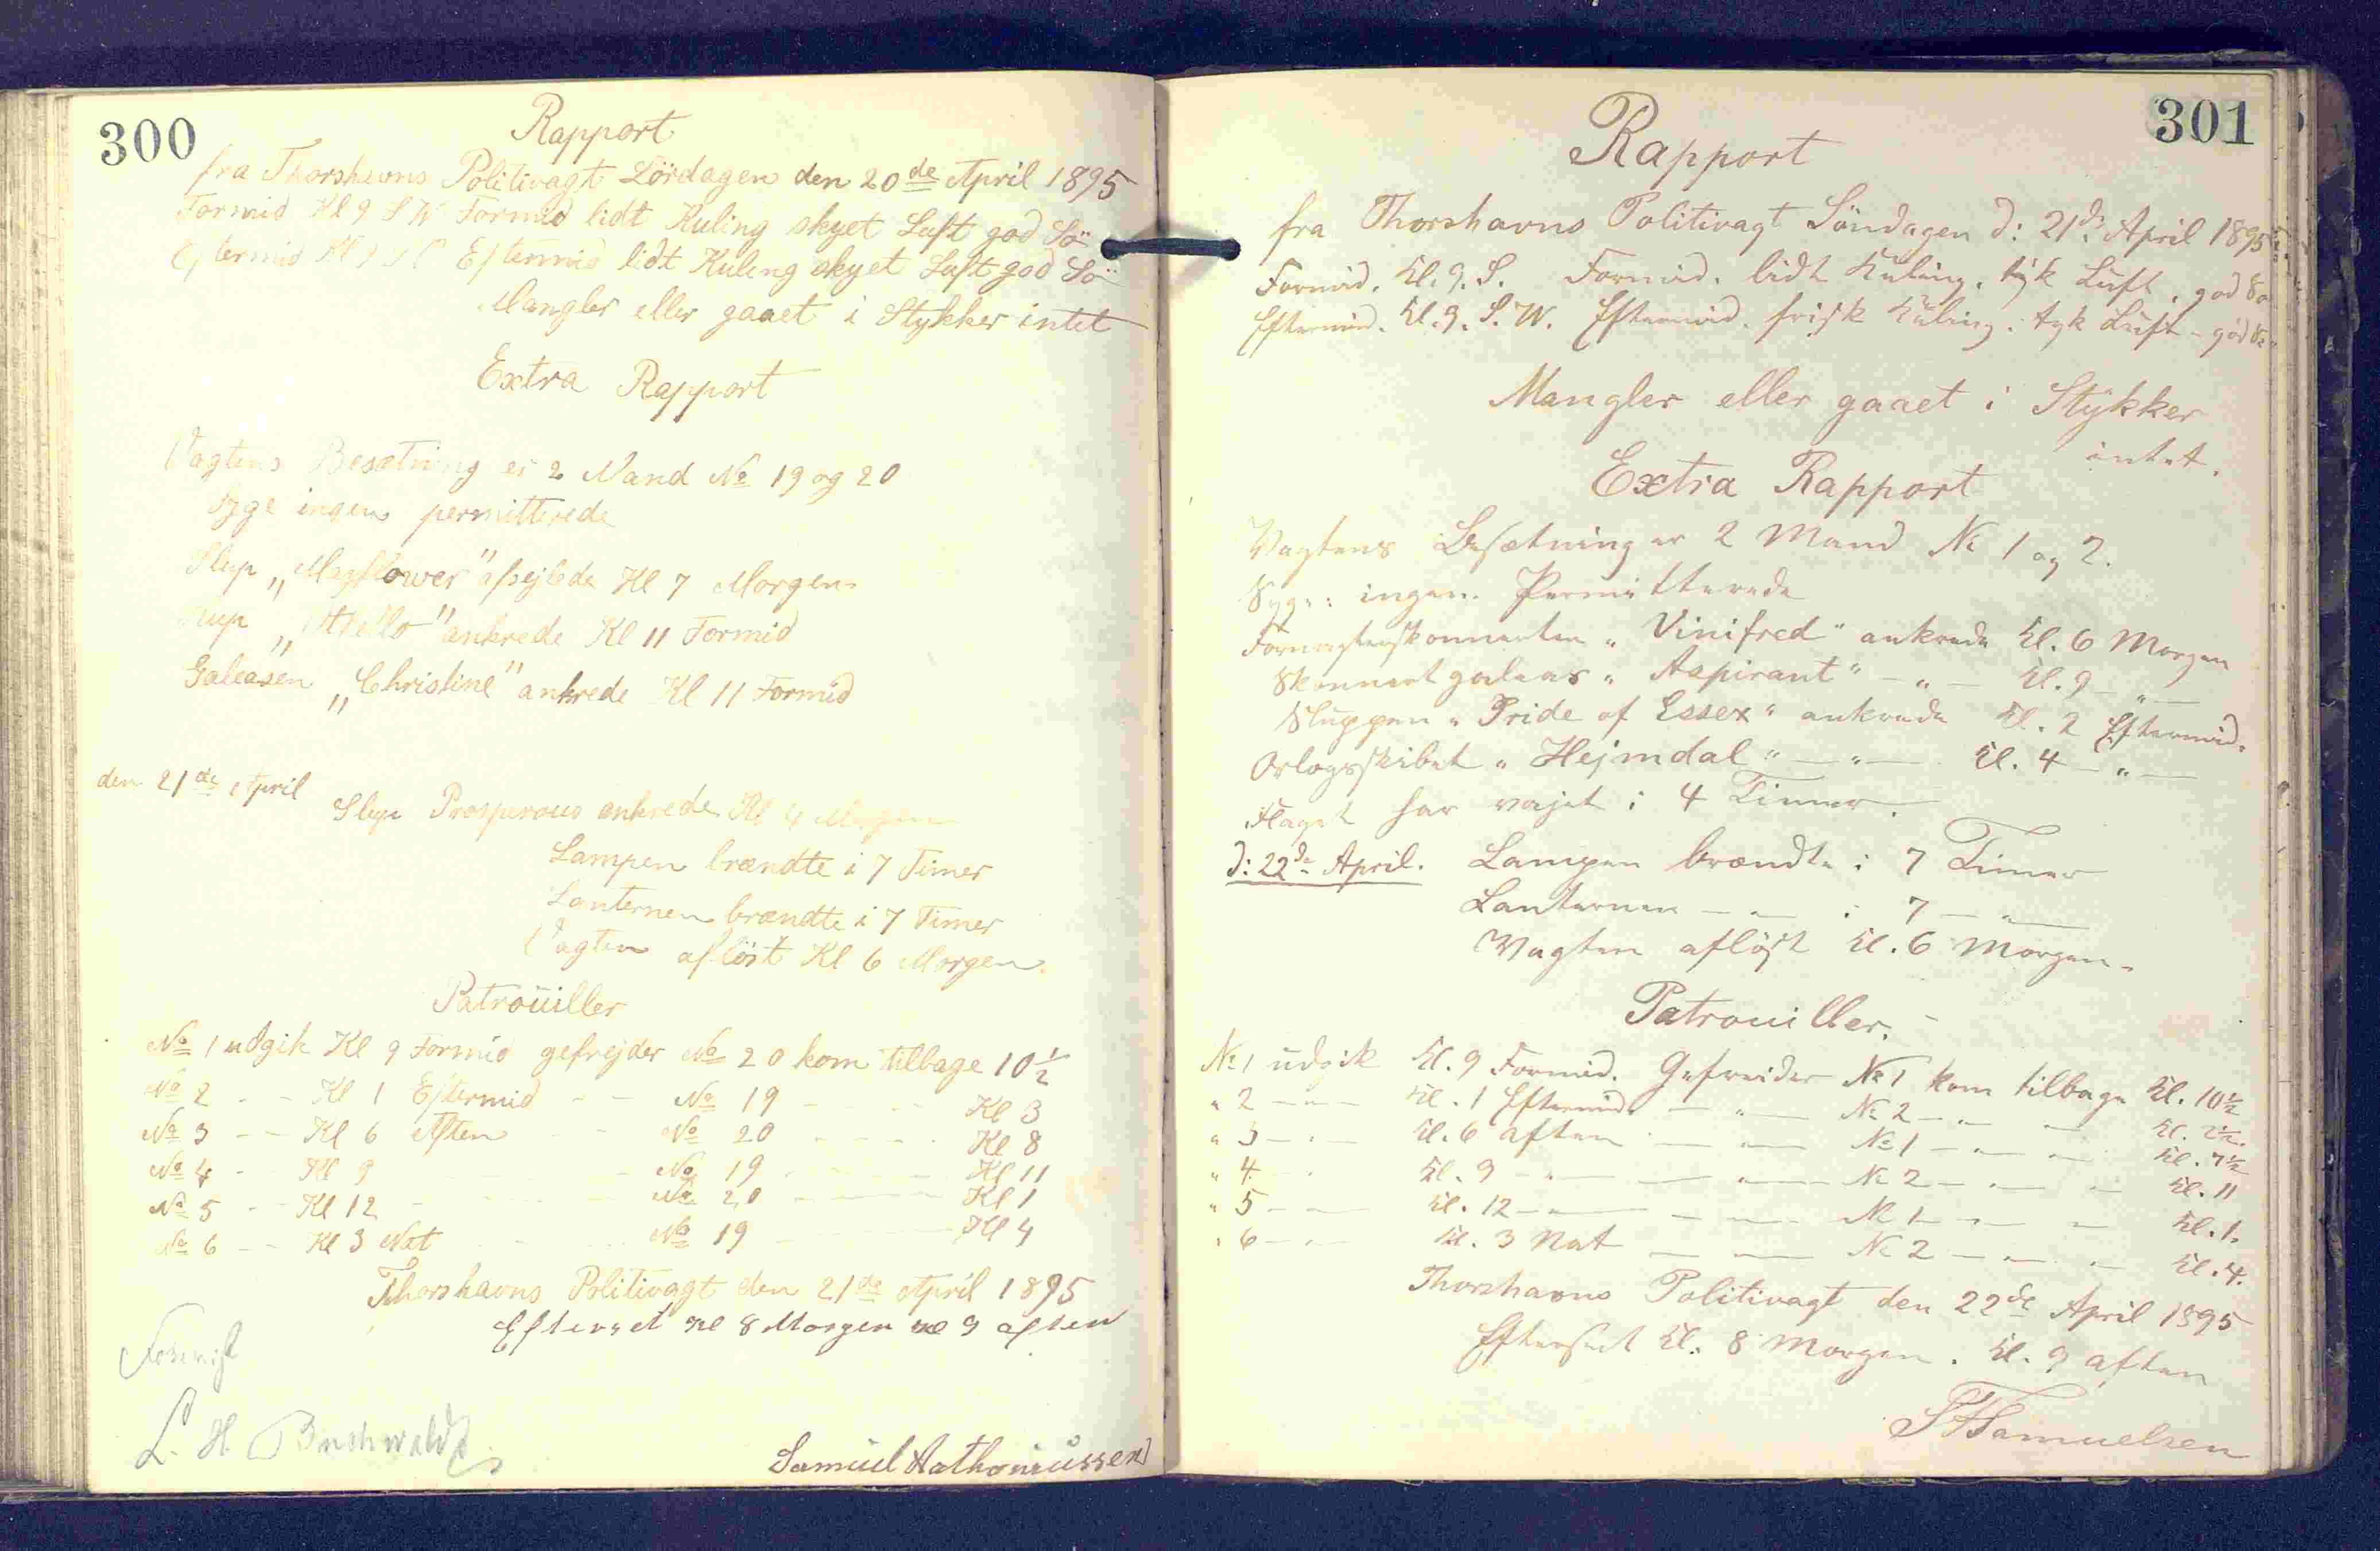 300
Rapport
fra Thorshavns Politivagt Lördagen den 20de April 1895
Formid Kl 9 S W Formid lidt Kuling skyet Luft god Sö
Eftermid Kl 9 Eftermid lidt Kuling skyet Luft god Sö
Mangler eller gaaet i Stykker intet
Extra Rapport
Vagtens Besætning er 2 Mand No 19 og 20
Syge ingen permitterede
Slup „Mayflower" afsejlede Kl 7 Morgen
Slup „Othello" ankrede Kl 11 Formid
Galeasen „Christine" ankrede Kl 11 Formid
den 21de April
Slup Prosperous ankrede Kl 4 Morgen
Lampen brændte i 7 Timer
Lanternen brændte i 7 Timer
Vagten aflöst Kl 6 Morgen
Patroüiller
No 1 udgik Kl 9 Formid gefrejder No 20 kom tilbage 10½
No 2 - - Kl 1 Eftermid - - No 19 - - Kl 3
No 3 - - Kl 6 Aften - - No 20 - - Kl 8
No 4 - - Kl 9 - - No 19 - - Kl 11
No 5 - - Kl 12 - - No 20 - - Kl 1
No 6 - - Kl 3 Nat - - No 19 - - Kl 4
Thorshavns Politivagt den 21de April 1895
Efterset Kl 8 Morgen Kl 9 aften
Forevist
L. H. Buchwaldt
Samüel
301
Rapport
fra Thorshavns Politivagt Söndagen d: 21de April 1895
Formid. Kl. 9. S. Formid. lidt Kuling, tyk Luft, god Sö
Eftermid. Kl. 9. S. W. Eftermid. frisk Kuling, tyk Luft - god Sö
Mangler eller gaaet i Stykker
intet.
Extra Rapport
Vagtens Besætning er 2 Mand No 1 og 2.
Syge: ingen. Permitterede
Formasterskonnerten „Vinifred" ankrede Kl. 6 Morgen
Skonnertgaleas „Aspirant" — „ — Kl. 9 — „ —
Sluppen „Pride of Essex" ankrede Kl. 2 Eftermid.
Orlogsskibet „Hejmdal" — „ — Kl. 4 — „ —
Flaget har vajet i 4 Timer.
d: 22de April. Lampen brændte i 7 Timer
Lanternen — „ — i 7 — „ —
Vagten aflöst Kl. 6 Morgen.
Patrouiller.
No 1 udgik Kl. 9 Formid. Gefreider No 1 kom tilbage Kl. 10½
„ 2 — „ — Kl. 1 Eftermid. — „ — No 2 — „ — Kl. 2½.
„ 3 — „ — Kl. 6 aften — „ — No 1 — „ — Kl. 7½
„ 4 — „ — Kl. 9 — „ — No 2 — „ — Kl. 11
„ 5 — „ — Kl. 12 — „ — No 1 — „ — Kl. 1.
„ 6 — „ — Kl. 3 Nat — „ — No 2 — „ — Kl. 4.
Thorshavns Politivagt den 22de April 1895
Efterset Kl. 8 Morgen. Kl. 9 aften
Samuelsen